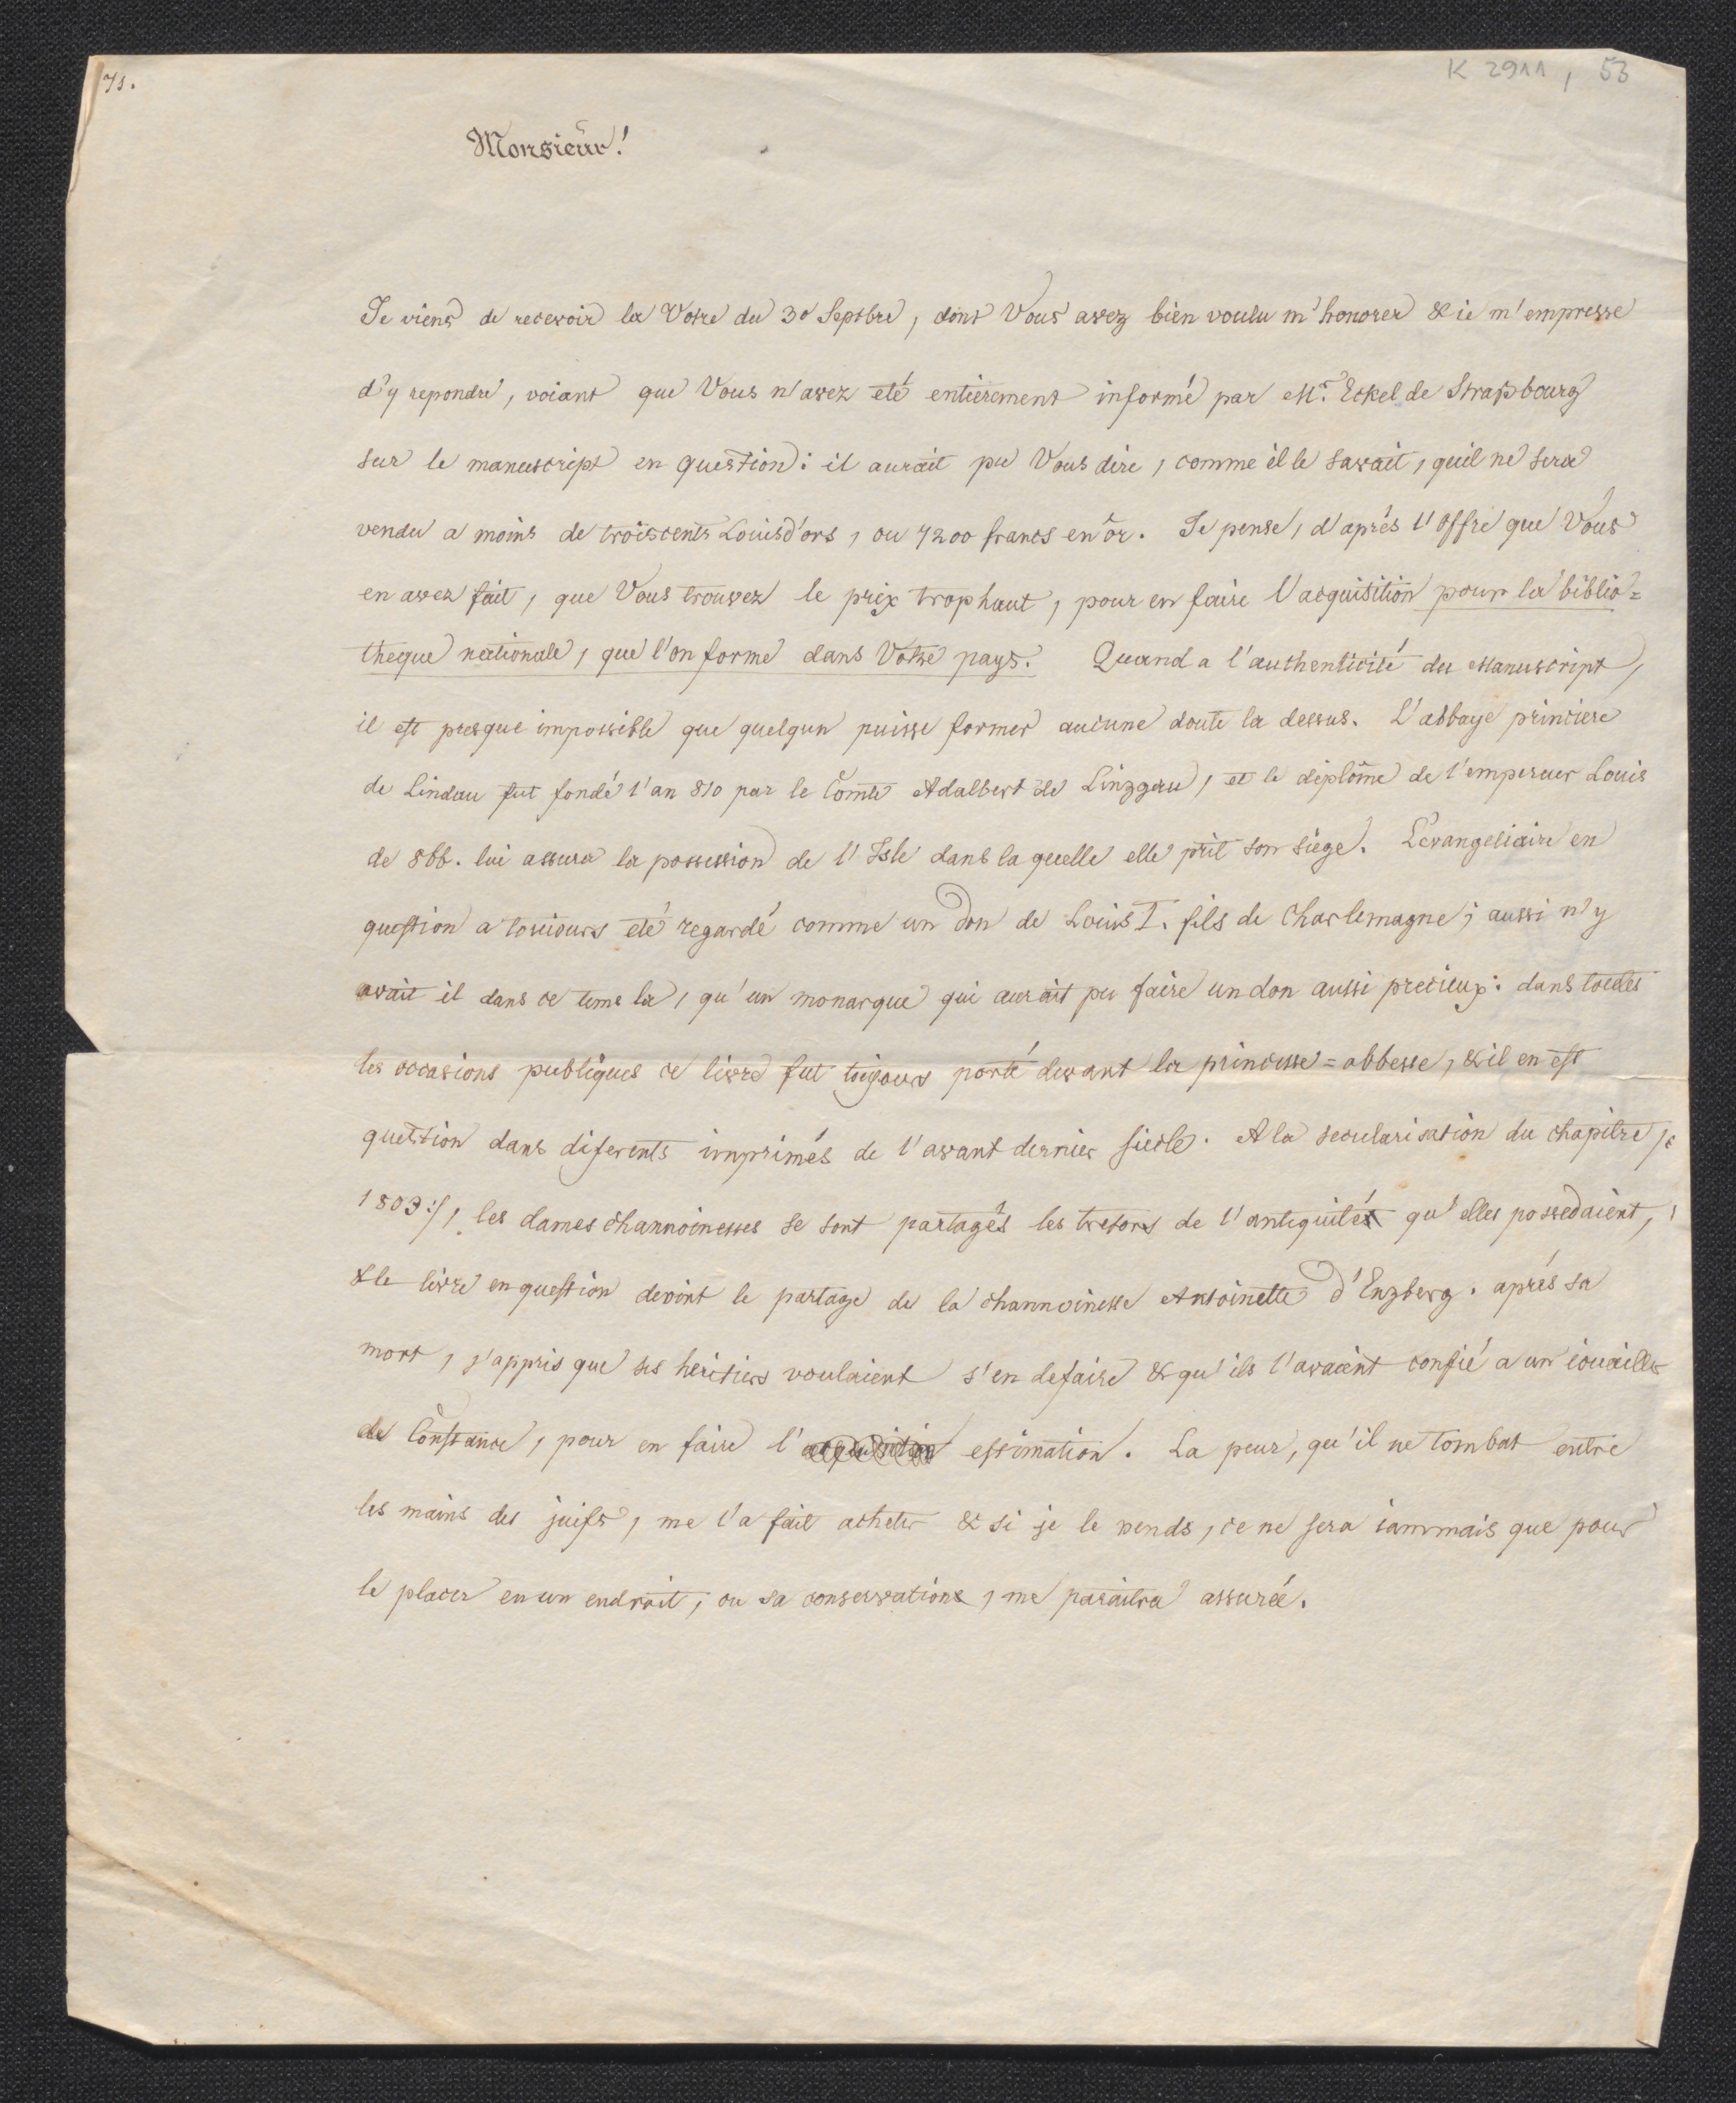 71.
K 2911, 53
Monsieur!
Je viens de recevoir la Votre du 30 Septbre, dont Vous avez bien voulu m'honorer & ie m'empresse
d'y repondre, voiant que Vous n'avez eté entierement informé par Mr. Eckel de Straßbourg
sur le manuscript en question: il aurait pu Vous dire, comme il le savait, quil ne sera
vendu a moins de troiscents Louisd'ors, ou 7200 francs en or. Je pense, d'aprés l'Offre que Vous
en avez fait, que Vous trouvez le prix trop haut, pour en faire l'acquisition pour la biblio=
theque nationale, que l'on forme dans Votre pays. Quand a l'authenticité du Manuscript,
il est presque impossible que quelqun puisse former aucune doute la dessus. L'abbaye princiere
de Lindau fut fondé l'an 810 par le Comte Adalbert de Linzgau, et le diplome de l'empereur Louis
de 866. lui assura la possession de l'Isle dans la quelle elle prit son siege. L'evangeliaire en
question a touiours eté regardé comme un don de Louis I. fils de Charlemagne; aussi n'y
avait il dans ce tems la, qu'un monarque qui aurait pu faire un don aussi precieux: dans toutes
les occasions publiques ce livre fut toujours porté devant la princesse=abbesse, & il en est
question dans diferents imprimés de l'avant dernier siecle. A la secularisation du chapitre /:
1803:/, les dames channoinesses se sont partagés les tresors de l'antiquité qu'elles possedaient,
& le livre en question devint le partage de la channoinesse Antoinette d'Enzberg. aprés sa
mort, j'appris que ses heritiers voulaient s'en defaire & qu'ils l'avaient confié a un iouailler
de Constance, pour en faire l'acquisition estimation. La peur, qu'il ne tombat entre
les mains des juifs, me l'a fait acheter & si je le vends, ce ne sera iammais que pour
le placer en un endroit, ou sa conservation, me paraitra assurée.